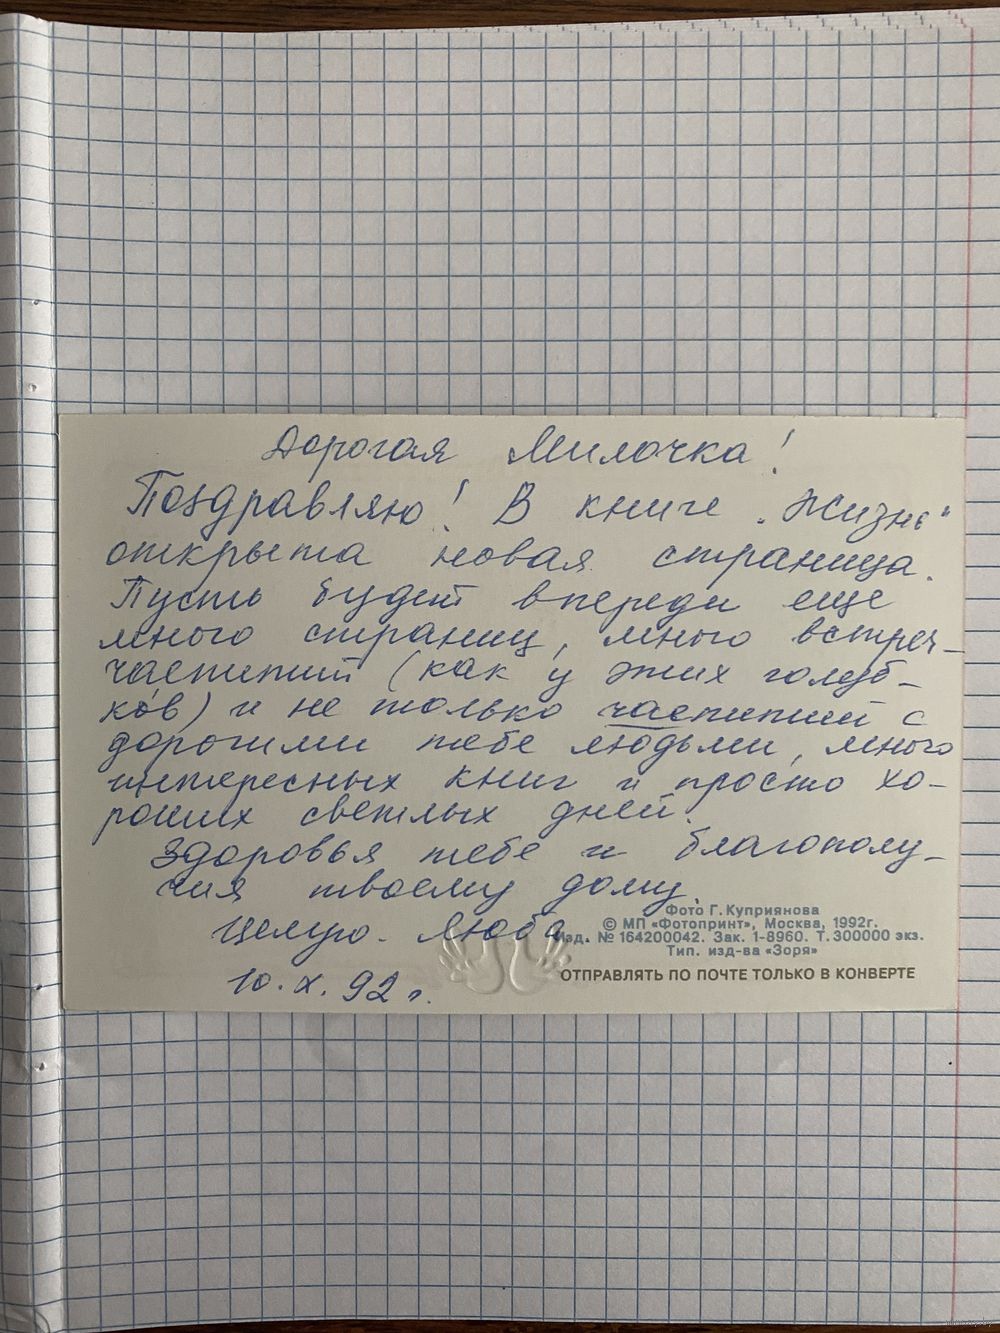 Дорогая Милочка!
Поздравляю! В книге „Жизнь“
открыта новая страница.
Пусть будет впереди еще
много страниц, много встреч-
чаепитий (как у этих голуб-
ков) и не только чаепитий с
дорогими тебе людьми, много
интересных книг и просто хо-
роших светлых дней.
Здоровья тебе и благополу-
чия твоему дому.
Целую. Люба
10.X.92 г.
Фото Г. Куприянова
© МП «Фотопринт», Москва, 1992г.
Изд. № 164200042. Зак. 1-8960. Т. 300000 экз.
Тип. изд-ва «Зоря»
ОТПРАВЛЯТЬ ПО ПОЧТЕ ТОЛЬКО В КОНВЕРТЕ